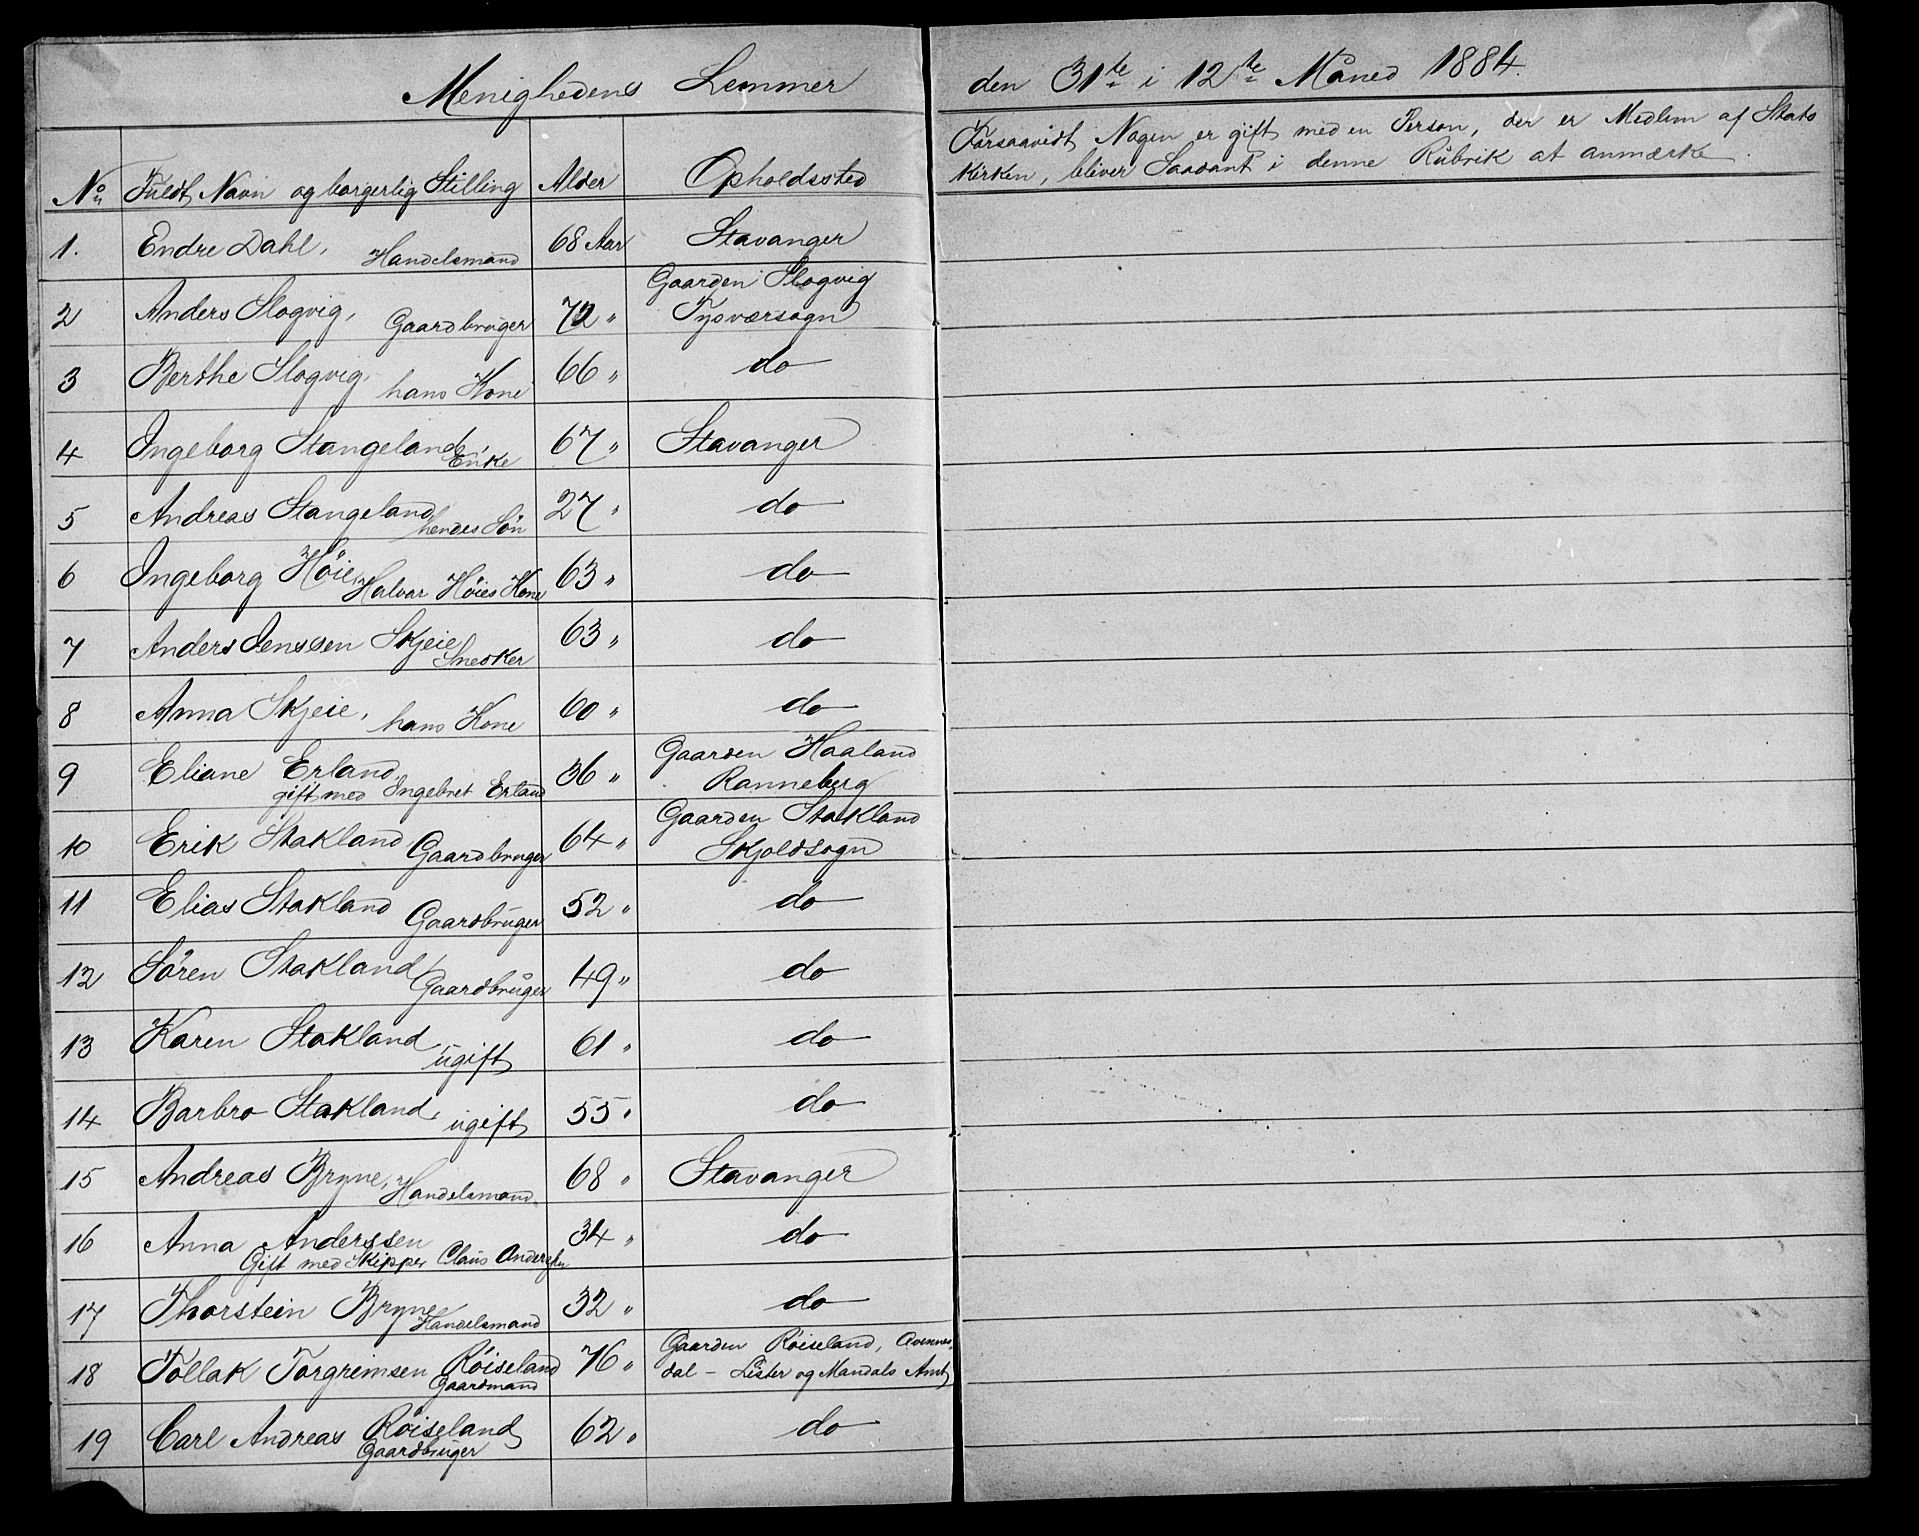 Menighedens Lemmer den 31te i 12te Måned 1884.
Forsaavidt Nogen er gift med en Person, der er Medlem af Stats
Kirken, bliver Saadant i denne Rubrik at anmærke.
No Fuldt Navn og borgerlig Stilling Alder Opholdssted
1. Endre Dahl, Handelsmand 68 Aar Stavanger
2 Anders Slogvig, Gaardbruger 72 " Gaarden Slogvig
Tysværsogn
3 Berthe Slogvig, hans Kone 66 " do
4 Ingeborg Stangeland, Enke 67 " Stavanger
5 Andreas Stangeland, hendes Sön 27 " do
6 Ingeborg Höie, Halvar Höies Kone 63 " do
7 Anders Jenssen Skjeie, Snedker 63 " do
8 Anna Skjeie, hans Kone 60 " do
9 Eliane Erland, 36 " Gaarden Haaland
gift med Ingebret Erland Ranneberg
10 Erik Stakland Gaardbruger 64 " Gaarden Stakland
Skjoldsogn
11 Elias Stakland Gaardbruger 52 " do
12 Sören Stakland, Gaardbruger 49 " do
13 Karen Stakland, ugift 61 " do
14 Barbro Stakland, ugift 55 " do
15 Andreas Bryne, Handelsmand 68 " Stavanger
16 Anna Anderssen 34 " do
Gift med Skipper Claus Anderssen
17 Thorstein Bryne Handelsmand 32 " do
18 Tollak Torgrimsen Röiseland 76 " Gaarden Röiseland, Qvennes-
Gaardmand dal - Lister og Mandals Amt
19 Carl Andreas Röiseland 62 " do
Gaardbruger